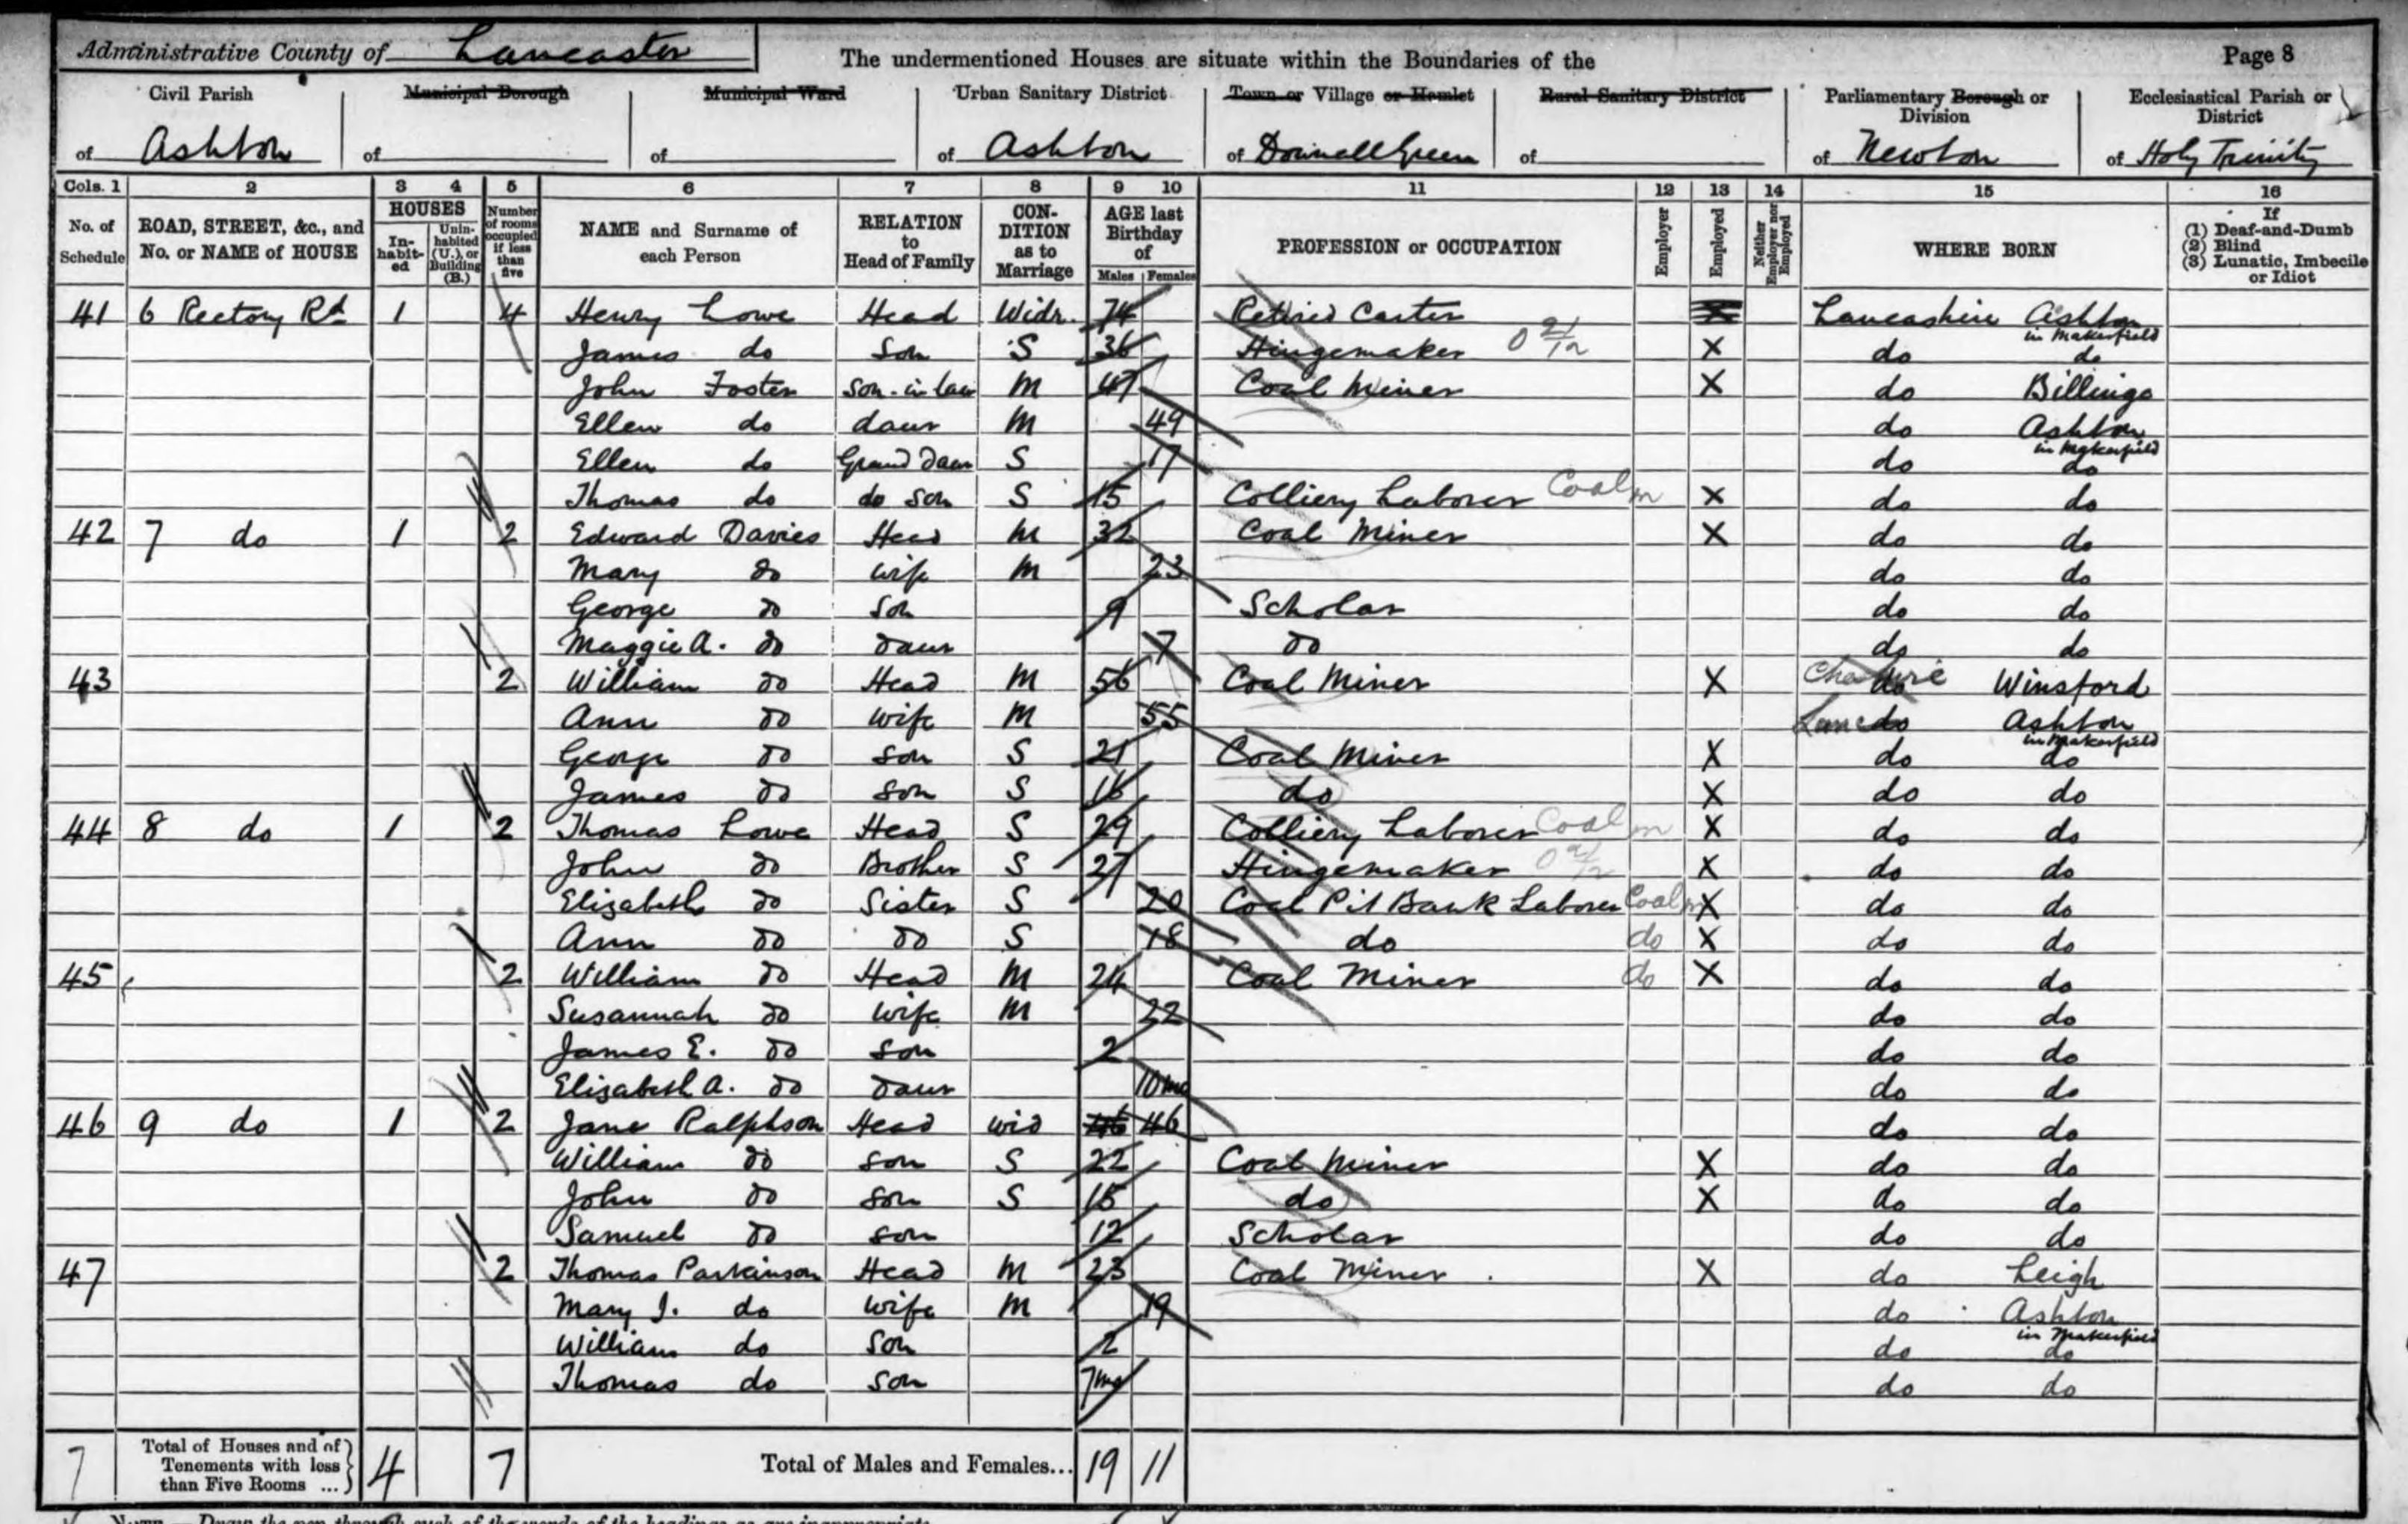 Administrative County of Lancaster The undermentioned Houses are situate within the Boundaries of the Page 8
Civil Parish Municipal Borough Municipal Ward Urban Sanitary District Town or Village or Hamlet Rural Sanitary District Parliamentary Borough or Division Ecclesiastical Parish or District
of Ashton of of of Ashton of Downall Green of of Newton of Holy Trinity
Cols. 1 2 3 4 5 6 7 8 9 10 11 12 13 14 15 16
No. of Schedule ROAD, STREET, &c., and No. or NAME of HOUSE HOUSES Inhabited Uninhabited (U.), or Building (B.) Number of rooms occupied if less than five NAME and Surname of each Person RELATION to Head of Family CONDITION as to Marriage AGE last Birthday of Males Females PROFESSION or OCCUPATION Employer Employed Neither Employer nor Employed WHERE BORN If (1) Deaf-and-Dumb (2) Blind (3) Lunatic, Imbecile or Idiot
41 6 Rectory Rd 1 4 Henry Lowe Head Widr. 74 Retired Carter X Lancashire Ashton in Makerfield
James do Son S 36 Hingemaker X do do
John Foster Son-in-law M 47 Coal Miner X do Billinge
Ellen do daur M 49 do Ashton in Makerfield
Ellen do Grand Daur S 17 do do
Thomas do do Son S 15 Colliery Laborer Coal m X do do
42 7 do 1 2 Edward Davies Head M 32 Coal Miner X do do
Mary do wife M 23 do do
George do Son 9 Scholar do do
Maggie A. do Daur 7 do do do
43 2 William do Head M 56 Coal Miner X do Cheshire Winsford
Ann do wife M 55 Lanc do Ashton in Makerfield
George do son S 21 Coal Miner X do do
James do son S 16 do X do do
44 8 do 1 2 Thomas Lowe Head S 29 Colliery Laborer Coal m X do do
John do Brother S 27 Hingemaker X do do
Elizabeth do Sister S 20 Coal Pit Bank Laborer Coal m X do do
Ann do do S 18 do do X do do
45 2 William do Head M 24 Coal Miner do X do do
Susannah do wife M 22 do do
James E. do son 2 do do
Elizabeth A. do Daur 10mo do do
46 9 do 1 2 Jane Ralphson Head wid 46 46 do do
William do son S 22 Coal Miner X do do
John do son S 15 do X do do
Samuel do son 12 Scholar do do
47 2 Thomas Parkinson Head M 23 Coal Miner X do Leigh
Mary J. do wife M 19 do Ashton in Makerfield
William do Son 2 do do
Thomas do son 7mo do do
7 Total of Houses and of Tenements with less than Five Rooms ... 4 7 Total of Males and Females... 19 11